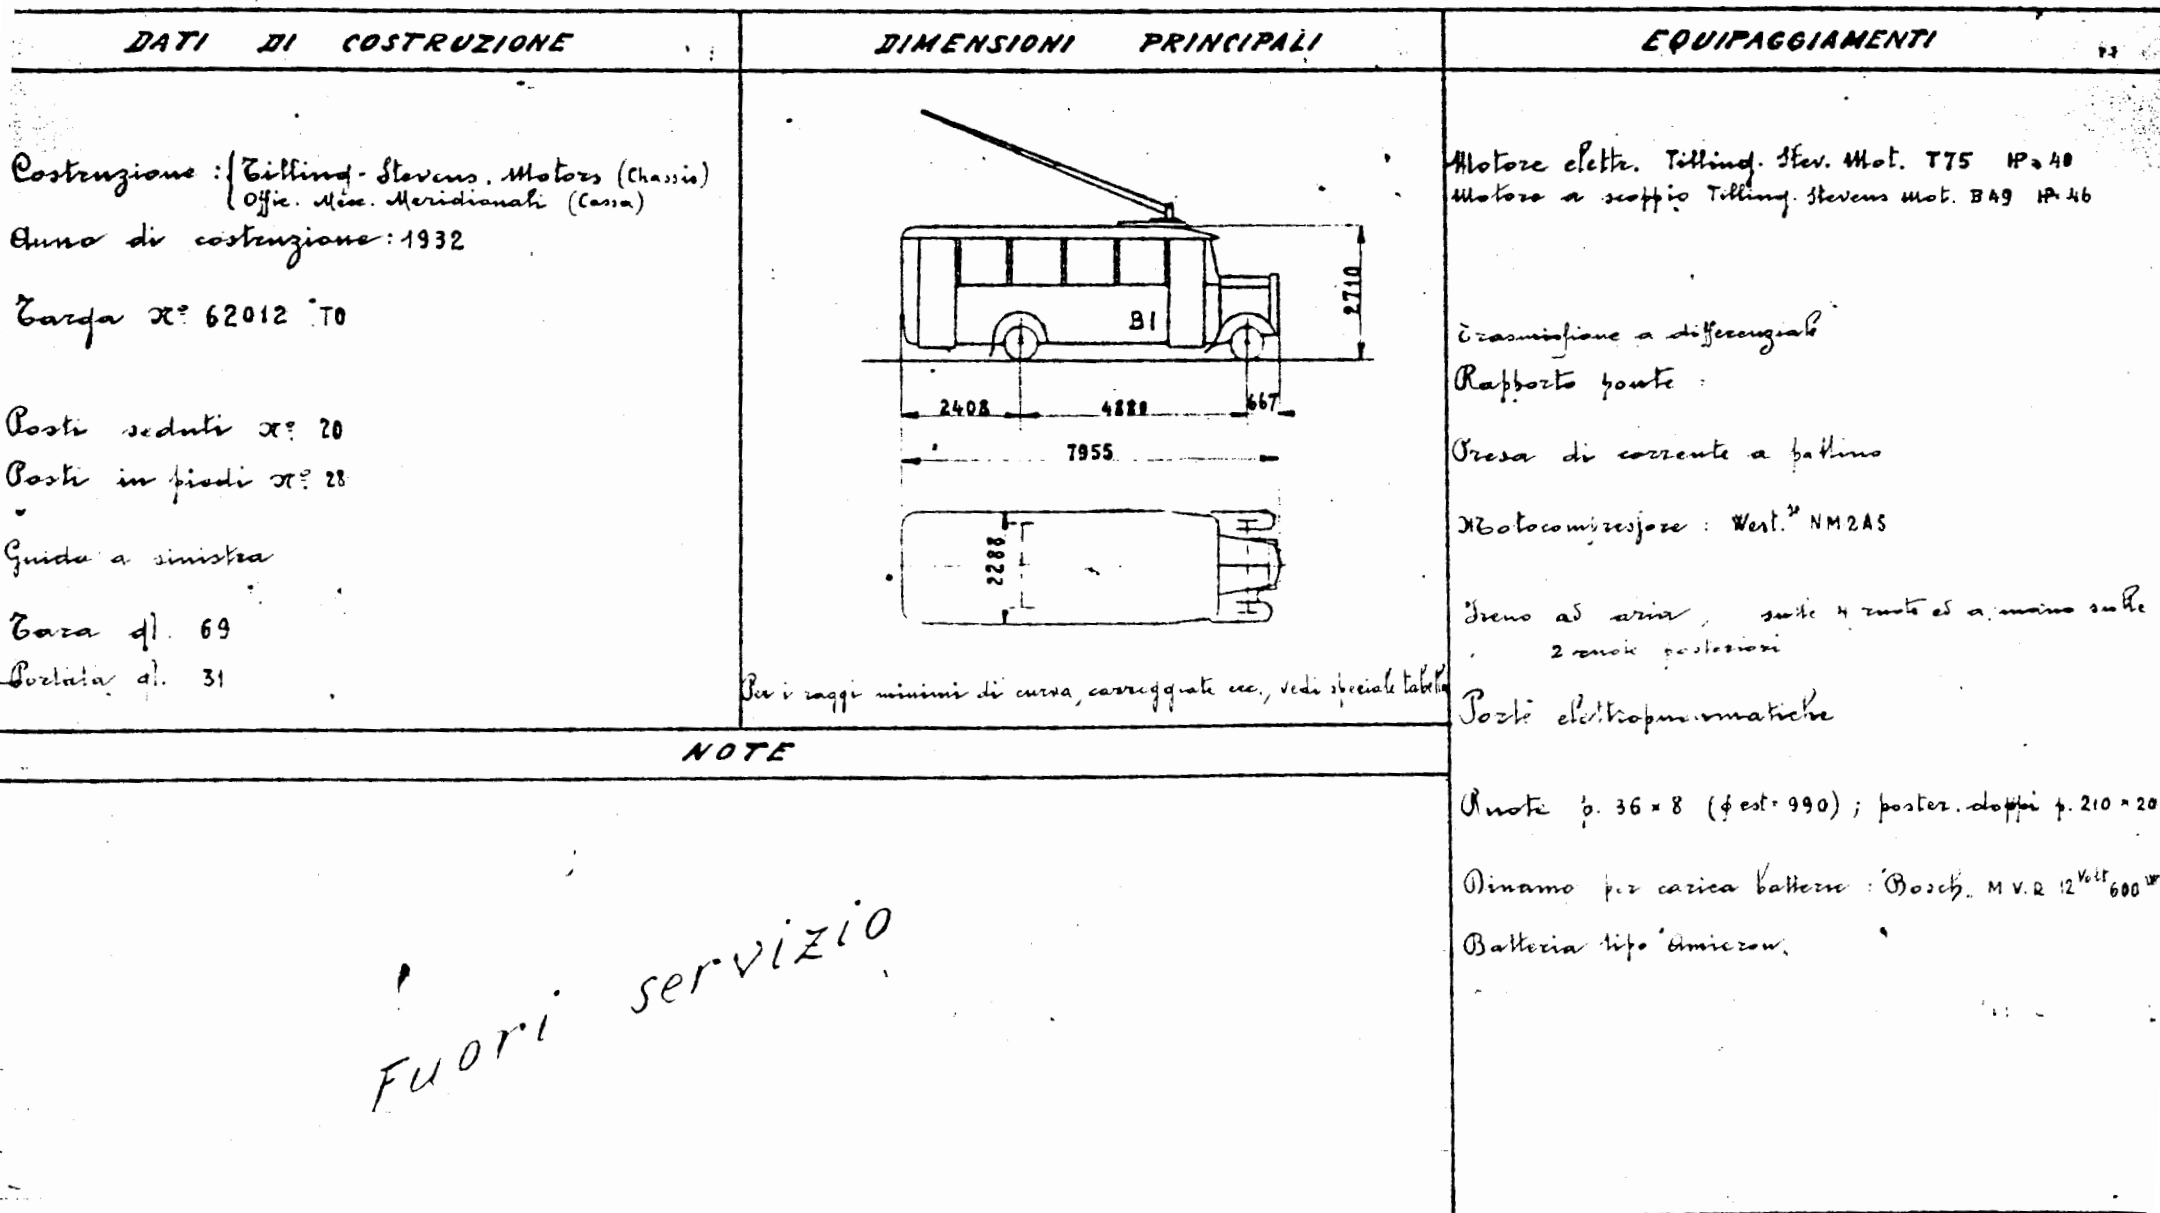 DATI DI COSTRUZIONE
Costruzione : Tilling-Stevens. Motors (Chassis)
Offic. Mecc. Meridionali (Cassa)
Anno di costruzione: 1932
Targa N° 62012 TO
Posti seduti N° 20
Posti in piedi N° 28
Guida a sinistra
Tara ql. 69
Portata ql. 31
DIMENSIONI PRINCIPALI
B1
2710
2408 4880 667
7955
2288
Per i raggi minimi di curva, carreggiate ecc., vedi speciale tabella
EQUIPAGGIAMENTI
Motore elettr. Tilling. Stev. Mot. T75 HP= 40
Motore a scoppio Tilling. Stevens Mot. B49 HP= 46
Trasmissione a differenziale
Rapporto ponte :
Presa di corrente a pattino
Motocompressore : West. NM2AS
Freno ad aria, sulle 4 ruote ed a mano sulle
2 ruote posteriori
Porte elettropneumatiche
Ruote p. 36 × 8 (φ est= 990) ; poster. doppi p. 210 × 20
Dinamo per carica batterie : Bosch. M V.R 12 Volt 600 W
Batteria tipo Amicron.
NOTE
Fuori servizio